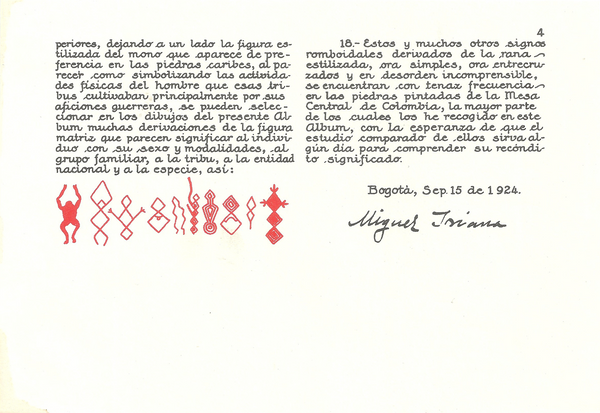 4
periores, dejando a un lado la figura es-
tilizada del mono que aparece de pre-
ferencia en las piedras caribes, al pa-
recer como simbolizando las activida-
des físicas del hombre que esas tri-
bus cultivaban principalmente por sus
aficiones guerreras, se pueden selec-
cionar en los dibujos del presente Ál-
bum muchas derivaciones de la figura
matriz que parecen significar al indivi-
duo con su sexo y modalidades, al
grupo familiar, a la tribu, a la entidad
nacional y a la especie, así:
18.- Estos y muchos otros signos
romboidales derivados de la rana
estilizada, ora simples, ora entrecru-
zados y en desorden incomprensible,
se encuentran con tenaz frecuencia
en las piedras pintadas de la Mesa
Central de Colombia, la mayor parte
de los cuales los he recogido en este
Álbum, con la esperanza de que el
estudio comparado de ellos sirva al-
gún día para comprender su recóndi-
to significado.
Bogotá, Sep. 15 de 1924.
Miguel Triana